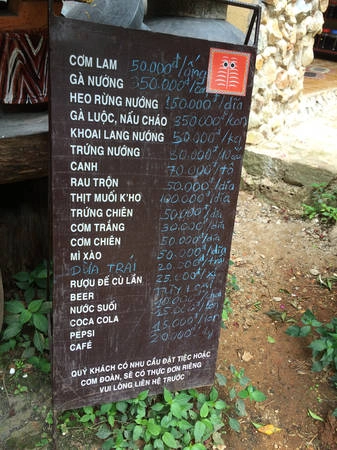 CƠM LAM 50.000đ/ống
GÀ NƯỚNG 350.000đ/con
HEO RỪNG NƯỚNG 150.000đ/dĩa
GÀ LUỘC, NẤU CHÁO 350.000đ/con
KHOAI LANG NƯỚNG 50.000đ/kg
TRỨNG NƯỚNG
CANH 70.000đ/tô
RAU TRỘN 50.000đ/dĩa
THỊT MUỐI K'HO 100.000đ/dĩa
TRỨNG CHIÊN 50.000đ/dĩa
CƠM TRẮNG 30.000đ/dĩa
CƠM CHIÊN 50.000đ/dĩa
MÌ XÀO 50.000đ/dĩa
DỪA TRÁI 20.000đ/trái
RƯỢU ĐẾ CÙ LẦN
BEER
NƯỚC SUỐI
COCA COLA 15.000/lon
PEPSI 15.000/lon
CAFÉ 20.000/ly
QUÝ KHÁCH CÓ NHU CẦU ĐẶT TIỆC HOẶC
CƠM ĐOÀN, SẼ CÓ THỰC ĐƠN RIÊNG
VUI LÒNG LIÊN HỆ TRƯỚC